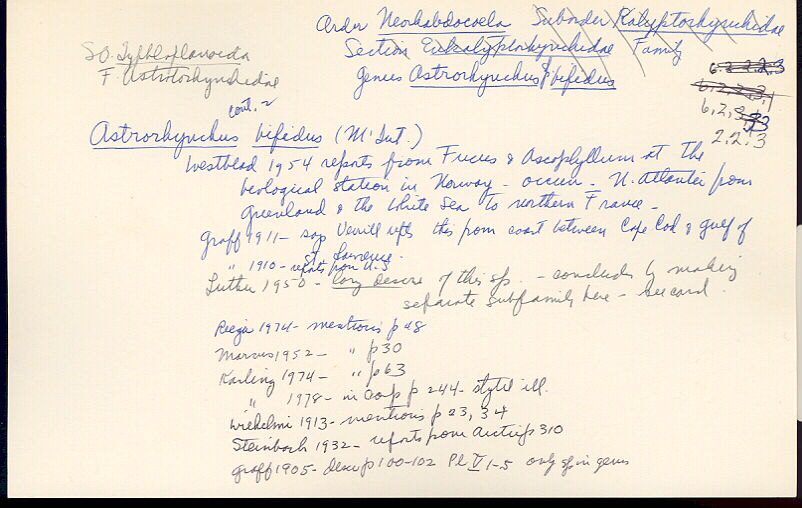 Order Neorhabdocoela Suborder Kalyptorhynchidae
Section Eukalyptorhynchidae Family
Genus Astrorhynchus bifidus
S.O. Typhloplanoida
F. Astrotorhynchidae
cont. 2
6.2.2.2.3
6.2.2.3.1
6,2,3
2.2.3
Astrorhynchus bifidus (M'Int.)
Westblad 1954 reports from Fucus & Ascophyllum at the
biological station in Norway - occurr. N. Atlantic from
Greenland & the White Sea to northern France -
Graff 1911 - says Verrill rpts this from coast between Cape Cod & gulf of
St. Lawrence.
" 1910 - reports from U.S
Luther 1950 - long descr of this sp. - concludes by making
separate subfamily here - see card.
Rieger 1974 - mentions p 28
Marcus 1952 - " p30
Karling 1974 - " p63
" 1978 - in Carp p 244 - stylet ill.
Wilhelmi 1913 - mentions p 23, 34
Steinbock 1932 - reports from Arctic p 310
Graff 1905 - desc p100-102 Pl V 1-5 only sp in genus